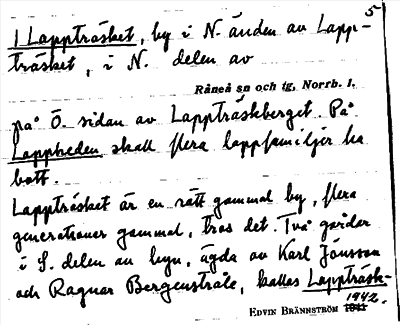 5
1 Lappträsket, by i N. änden av Lapp-
träsket, i N. delen av
Råneå sn och tg, Norrb. l.
på Ö. sidan av Lappträskberget. På
Lappheden skall flera lappfamiljer ha
bott.
Lappträsket är en rätt gammal by, flera
generationer gammal, tros det. Två gårdar
i S. delen av byn, ägda av Karl Jonsson
och Ragnar Bergenstråle, kallas Lappträsk-
1942.
EDVIN BRÄNNSTRÖM 1941